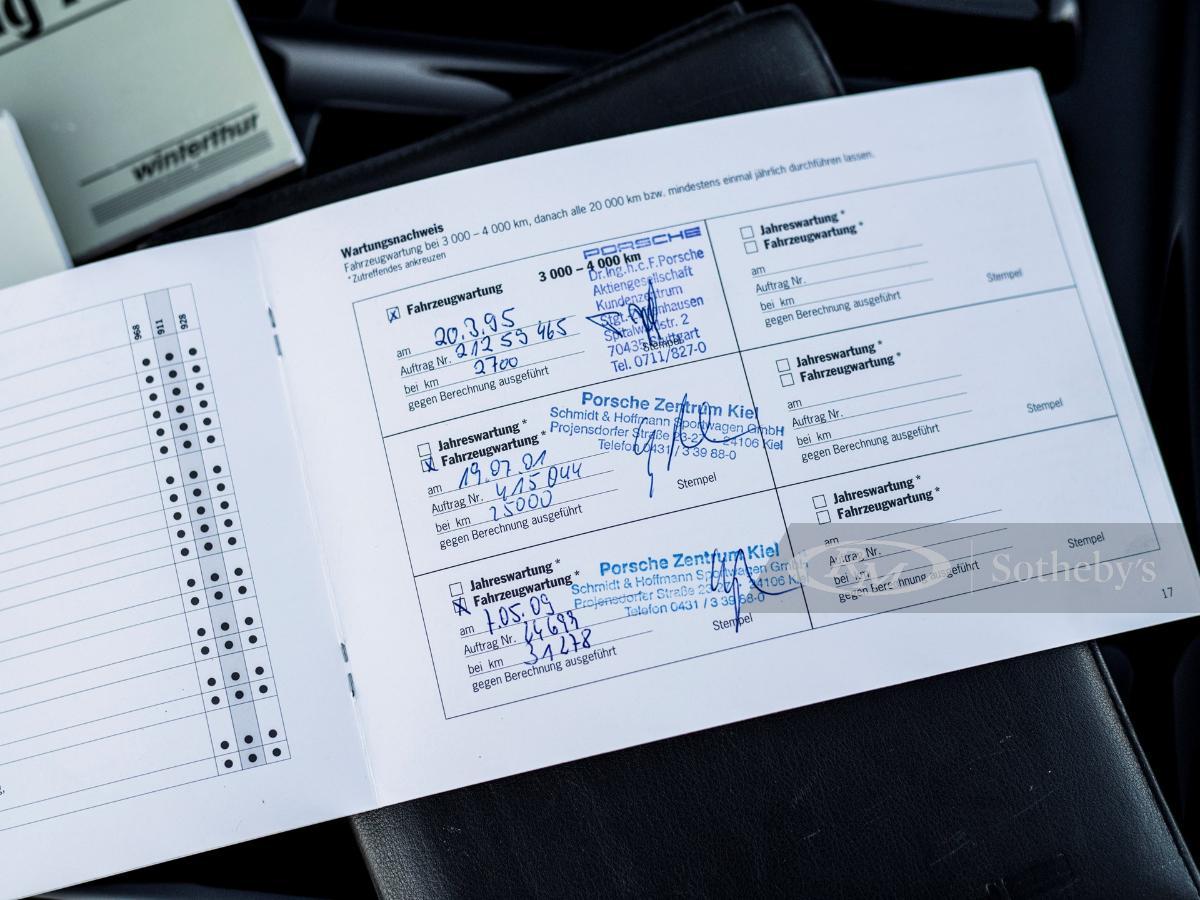 winterthur
968
911
928
Wartungsnachweis
Fahrzeugwartung bei 3 000 – 4 000 km, danach alle 20 000 km bzw. mindestens einmal jährlich durchführen lassen.
*Zutreffendes ankreuzen
3 000 – 4 000 km
x Fahrzeugwartung
am 20.3.95
Auftrag Nr. 21259 465
bei km 2700
gegen Berechnung ausgeführt
PORSCHE
Dr.Ing.h.c.F.Porsche
Aktiengesellschaft
Kundenzentrum
Stgt.
2
70435 Stuttgart
Tel. 0711/827-0
Stempel
Jahreswartung*
x Fahrzeugwartung*
am 19.07.01
Auftrag Nr. 415044
bei km 25000
gegen Berechnung ausgeführt
Porsche Zentrum Kiel
Schmidt & Hoffmann Sportwagen GmbH
Projensdorfer Straße 24106 Kiel
Telefon 0431 / 3 39 88-0
Stempel
Jahreswartung*
x Fahrzeugwartung*
am 7.05.09
Auftrag Nr.
bei km 31278
gegen Berechnung ausgeführt
Porsche Zentrum Kiel
Schmidt & Hoffmann Sportwagen
Projensdorfer Straße 24106
Telefon 0431 / 3 39
Stempel
Jahreswartung*
Fahrzeugwartung*
am
Auftrag Nr.
bei km
gegen Berechnung ausgeführt
Stempel
Jahreswartung*
Fahrzeugwartung*
am
Auftrag Nr.
bei km
gegen Berechnung ausgeführt
Stempel
Jahreswartung*
Fahrzeugwartung*
am
Auftrag Nr.
bei km
gegen Berechnung ausgeführt
Stempel
17
RM Sotheby's